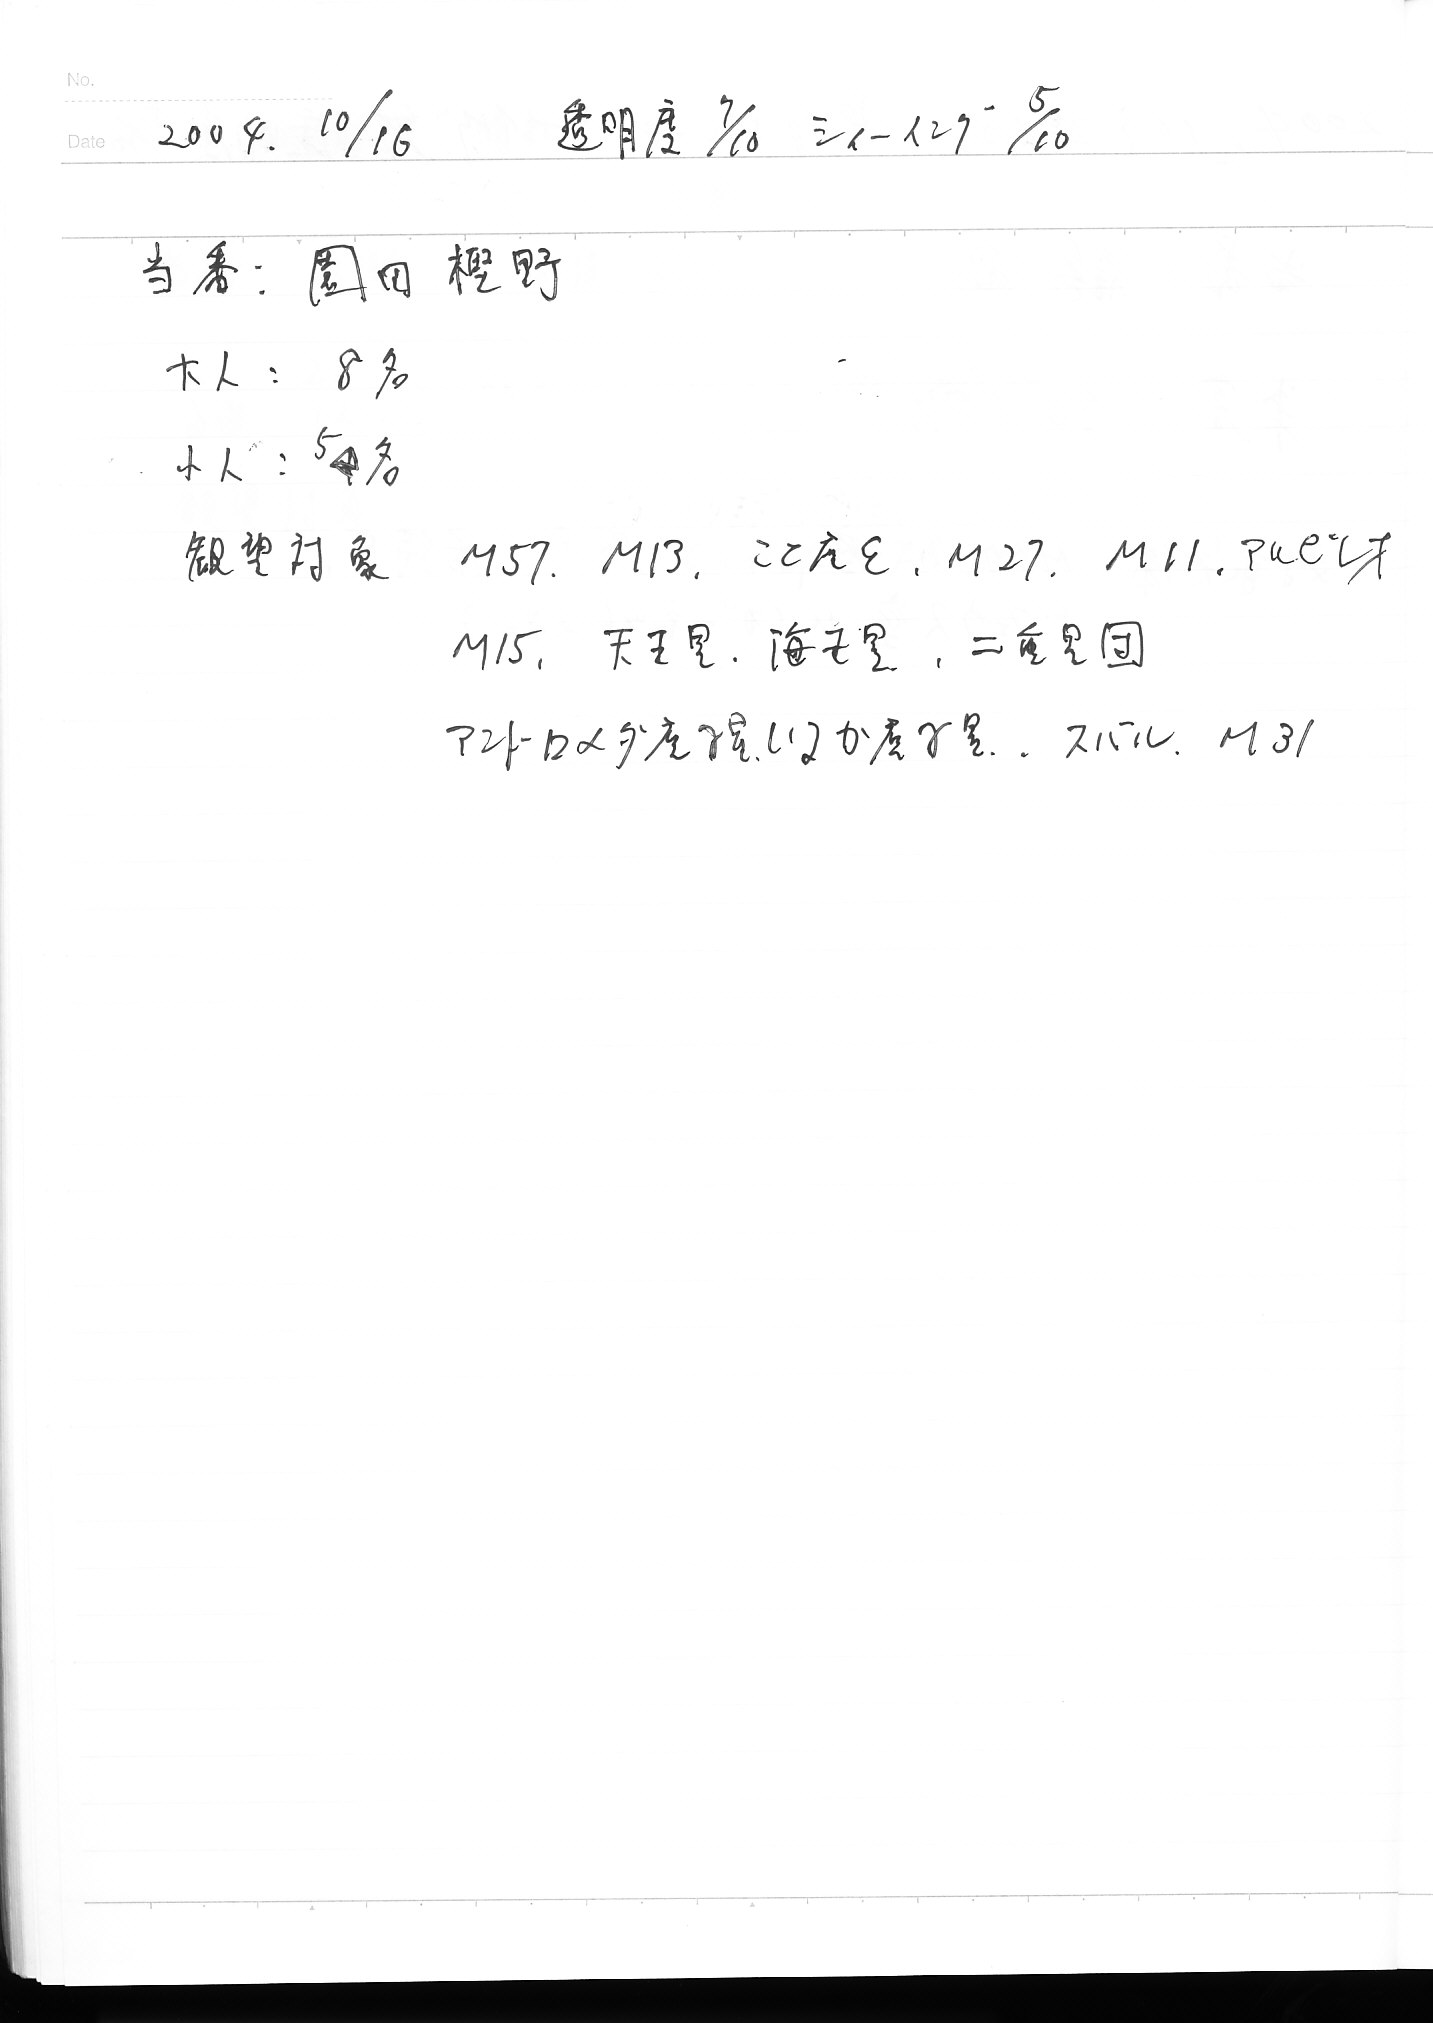 No.
Date 2004. 10/16 透明度 7/10 シィーイング 5/10
当番: 園田 樫野
大人: 8名
小人: 5名
観望対象 M57. M13. こと座ε. M27. M11. アルビレオ
M15. 天王星. 海王星. 二重星団
アンドロメダ座γ星. いるか座γ星.. スバル. M31